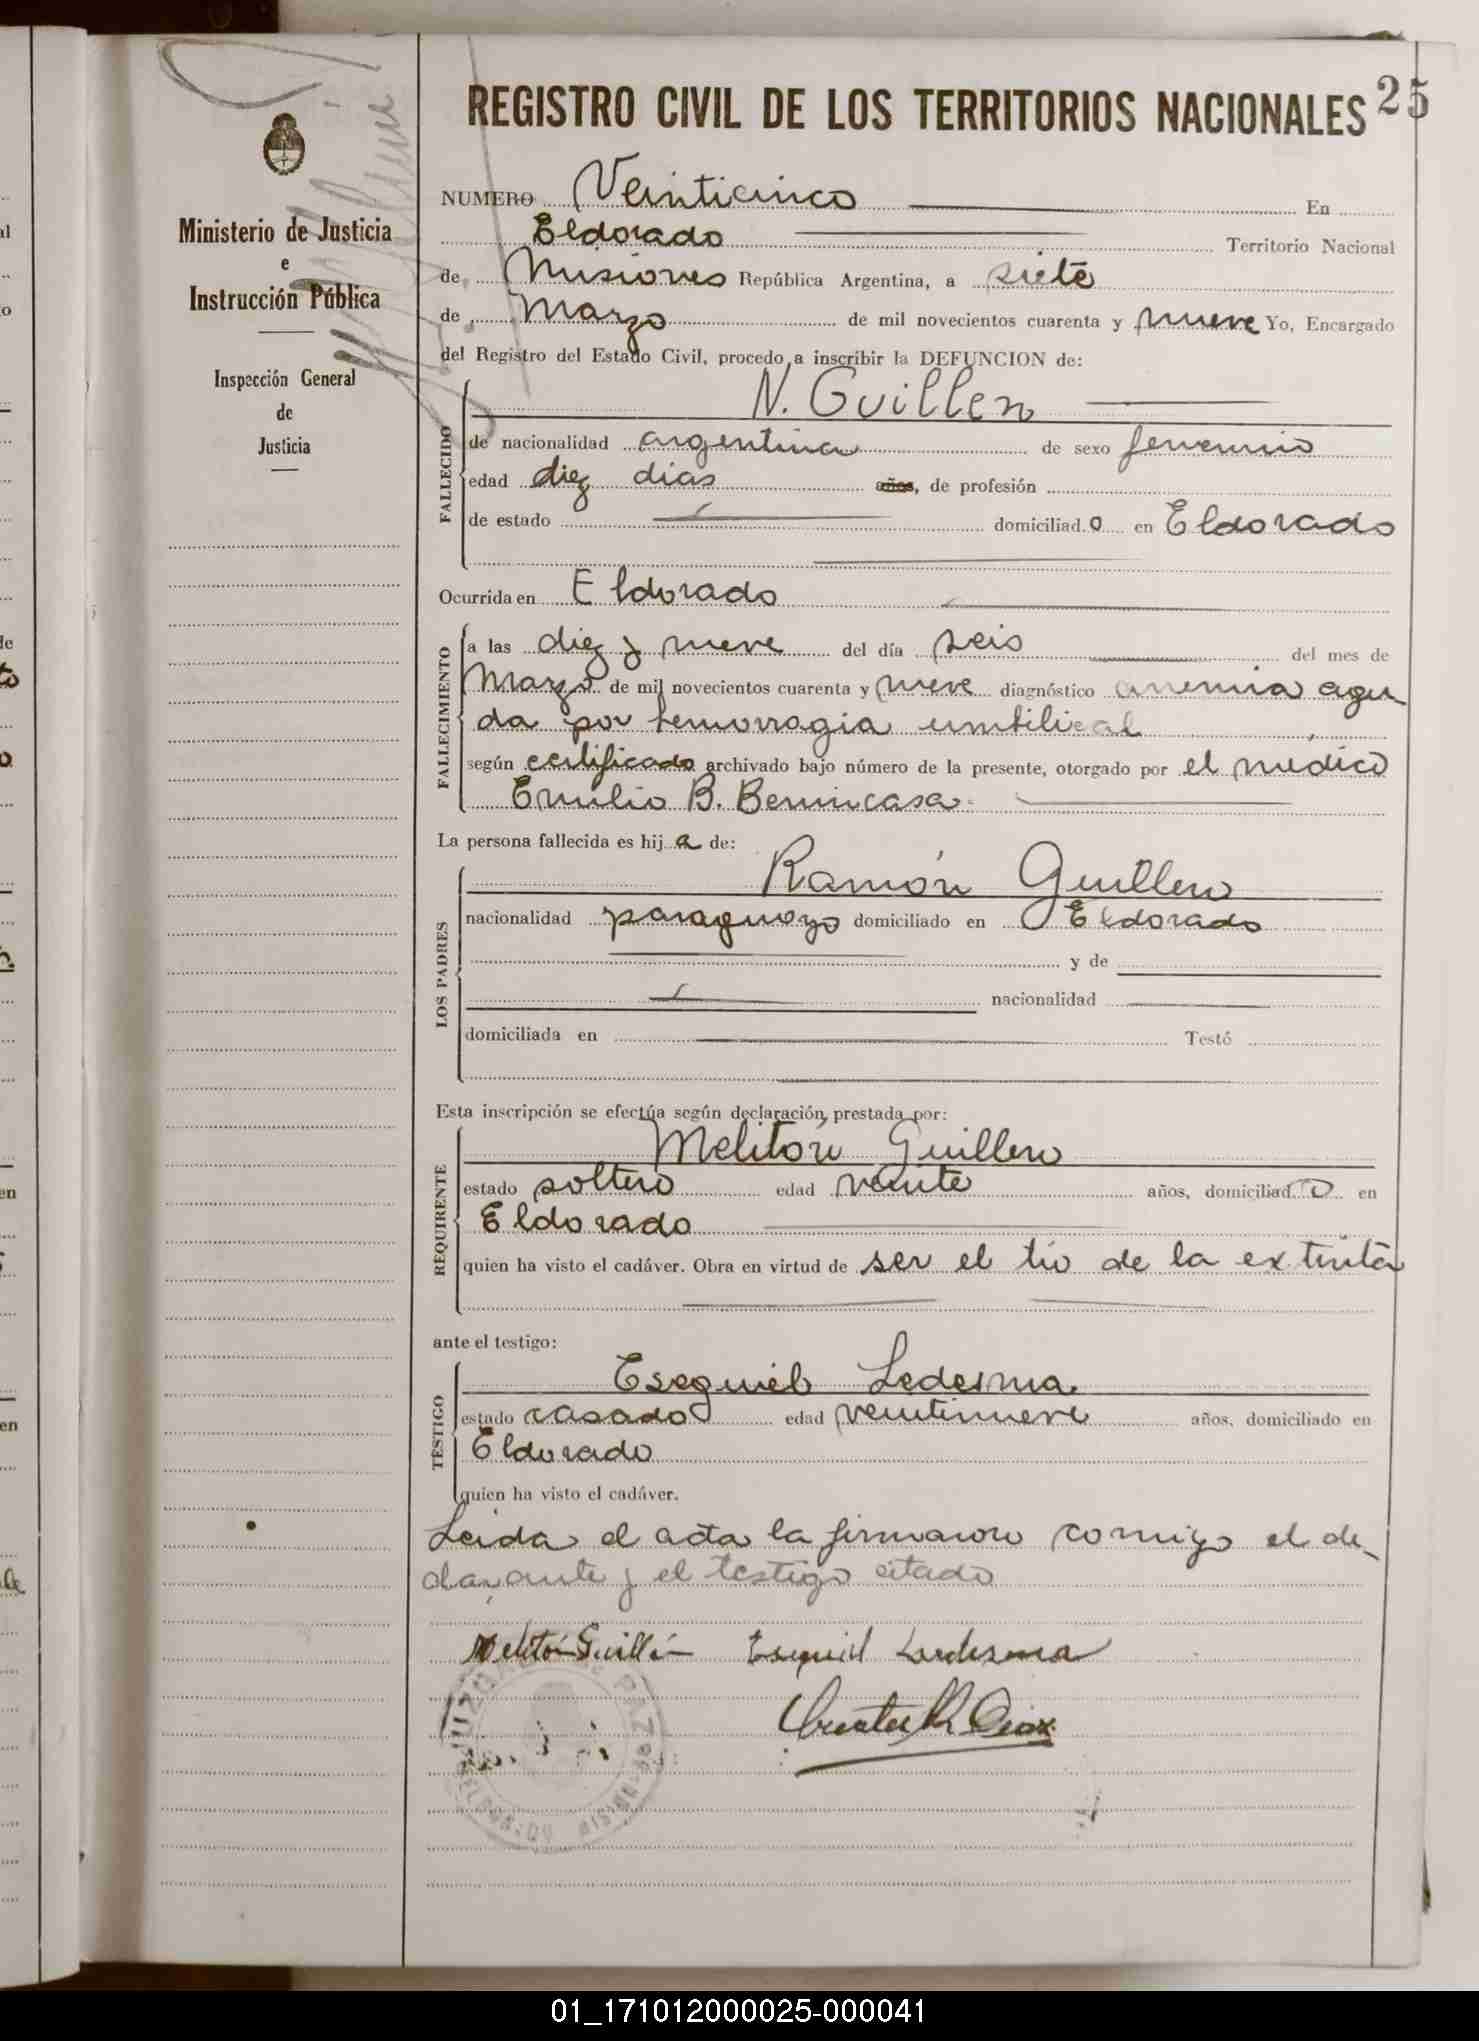 REGISTRO CIVIL DE LOS TERRITORIOS NACIONALES 25
Ministerio de Justicia
e
Instrucción Pública
Inspección General
de
Justicia
NUMERO Veinticinco En
Eldorado Territorio Nacional
de Misiones República Argentina, a siete
de Marzo de mil novecientos cuarenta y nueve Yo, Encargado
del Registro del Estado Civil, procedo a inscribir la DEFUNCION de:
FALLECIDO
N. Guillen
de nacionalidad argentina de sexo femenino
edad diez dias años, de profesión
de estado domiciliad o en Eldorado
Ocurrida en Eldorado
FALLECIMIENTO
a las diez y nueve del día seis del mes de
Marzo de mil novecientos cuarenta y nueve diagnóstico anemia agu-
da por hemorragia umbilical
según certificado archivado bajo número de la presente, otorgado por el médico
Emilio B. Benincasa
La persona fallecida es hij a de:
LOS PADRES
Ramón Guillen
nacionalidad paraguayo domiciliado en Eldorado
y de
nacionalidad
domiciliada en Testó
Esta inscripción se efectúa según declaración prestada por:
REQUIRENTE
Melitón Guillen
estado soltero edad veinte años, domiciliad o en
Eldorado
quien ha visto el cadáver. Obra en virtud de ser el tio de la extinta
ante el testigo:
TESTIGO
Esequiel Ledesma
estado casado edad veintinueve años, domiciliado en
Eldorado
quien ha visto el cadáver.
Leida el acta la firmaron conmigo el de-
clarante y el testigo citado
Melitón Guillén Esequiel Lardesma
JUZGADO DE PAZ
ELDORADO MISIONES
01_171012000025-000041